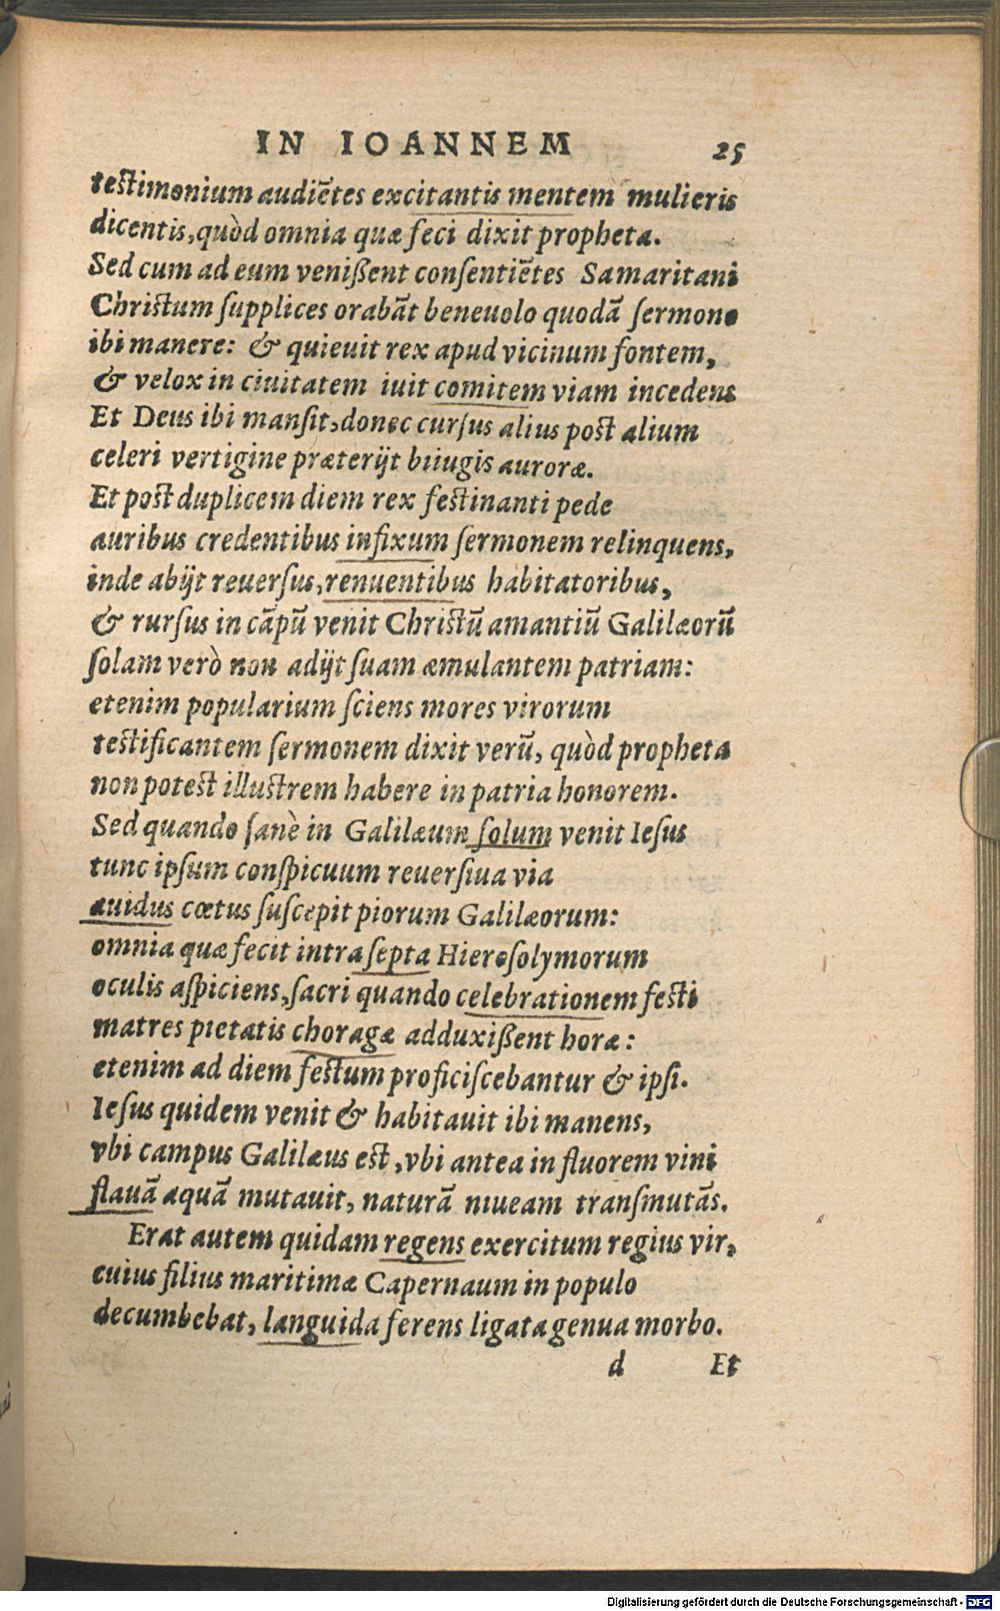 IN IOANNEM 25
testimonium audiẽtes excitantis mentem mulieris
dicentis, quòd omnia quæ feci dixit propheta.
Sed cum ad eum venißent consentiẽtes Samaritani
Christum supplices orabãt beneuolo quodã sermone
ibi manere: & quieuit rex apud vicinum fontem,
& velox in ciuitatem iuit comitem viam incedens
Et Deus ibi mansit, donec cursus alius post alium
celeri vertigine præterijt biiugis auroræ.
Et post duplicem diem rex festinanti pede
auribus credentibus infixum sermonem relinquens,
inde abijt reuersus, renuentibus habitatoribus,
& rursus in cãpũ venit Christũ amantiũ Galilæorũ
solam verò non adijt suam æmulantem patriam:
etenim popularium sciens mores virorum
testificantem sermonem dixit verũ, quòd propheta
non potest illustrem habere in patria honorem.
Sed quando sanè in Galilæum solum venit Iesus
tunc ipsum conspicuum reuersiua via
auidus cœtus suscepit piorum Galilæorum:
omnia quæ fecit intra septa Hierosolymorum
oculis aspiciens, sacri quando celebrationem festi
matres pietatis choragæ adduxißent horæ:
etenim ad diem festum proficiscebantur & ipsi.
Iesus quidem venit & habitauit ibi manens,
vbi campus Galilæus est, vbi antea in fluorem vini
flauã aquã mutauit, naturã niueam transmutãs.
Erat autem quidam regens exercitum regius vir,
cuius filius maritimæ Capernaum in populo
decumbebat, languida ferens ligata genua morbo.
d Et
Digitalisierung gefördert durch die Deutsche Forschungsgemeinschaft - DFG